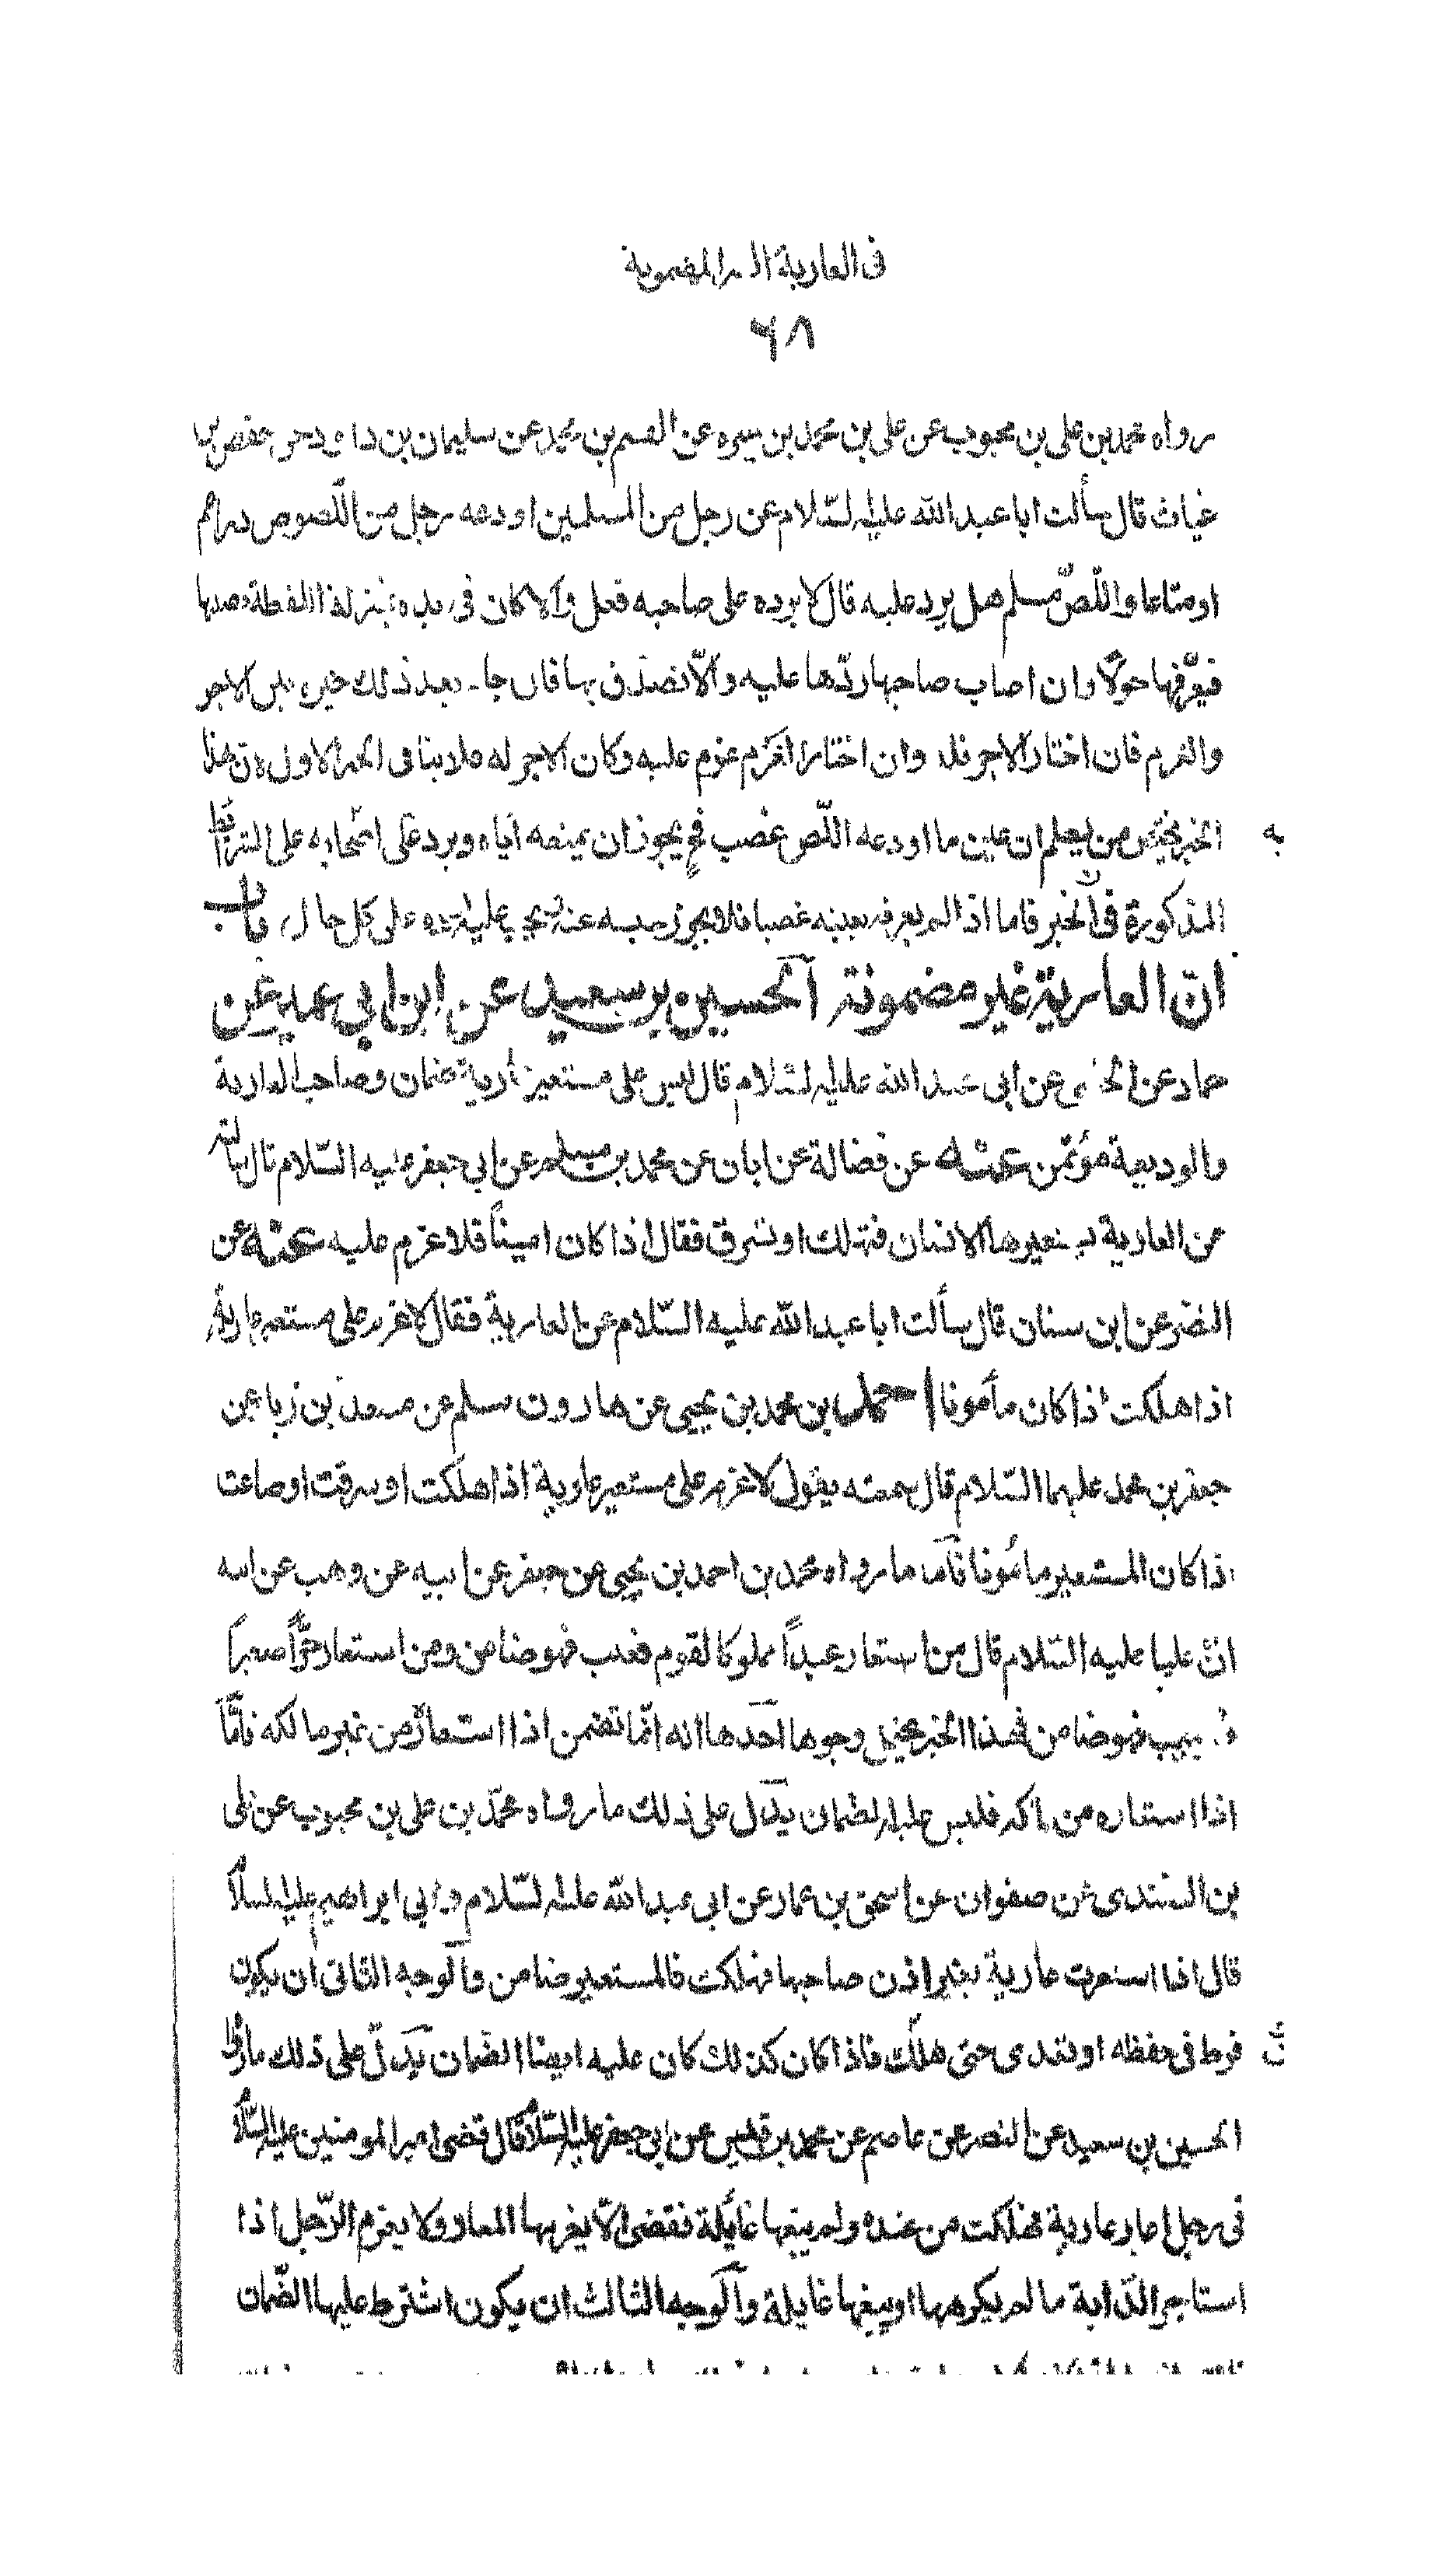 فى العارية الغير المضمونة
٦٨
رواه محمد بن على بن محبوب عن على بن محمد بن شيره عن القسم بن محمد عن سليمان بن داود عن حفص بن
غياث قال سألت ابا عبد الله عليه السّلام عن رجل من المسلمين اودعه رجل من اللّصوص دراهم
او متاعا واللّصّ مسلم هل يرد عليه قال لا يرده على صاحبه فعل والا كان فى يده بمنزلة اللقطة يصيبها
فيعرّفها حولا وان اصاب صاحبها ردّها عليه والّا تصدّق بها فان جاء بعد ذلك خيره بين الاجر
والغرم فان اختار الاجر فله وان اختار الغرم غرم عليه وكان الاجر له فلا ينافى الخبر الاول لان هذا
الخبر يختص من يعلم ان عين ما اودعه اللّص غصب فح يجوز ان يمنعه اياه ويرد على اصحابه على الشرائط
به
المذكورة فى الخبر فاما اذا لم يعرفه بعينه غصبا فلا يجوز حبسه عنه ويجب عليه رده على كل حال باب
انّ العارية غير مضمونة الحسين بن سعيد عن ابن ابي عمير عن
حماد عن الحلبى عن ابى عبد الله عليه السّلام قال ليس على مستعير عارية ضمان وصاحب العارية
والوديعة مؤتمن عنه عن فضالة عن ابان عن محمد بن مسلم عن ابي جعفر عليه السّلام قال سألته
عن العارية يستعيرها الانسان فتهلك او تسرق فقال اذا كان امينا فلا غرم عليه عنه عن
النضر عن ابن سنان قال سألت ابا عبد الله عليه السّلام عن العارية فقال لا غرم على مستعير عارية
اذا هلكت اذا كان مأمونا احمد بن محمد بن يحيى عن هارون مسلم عن مسعدة بن زياد عن
جعفر بن محمد عليهما السّلام قال سمعته يقول لا غرم على مستعير عارية اذا هلكت او سرقت او ضاعت
اذا كان المستعير مامونا فأما ما رواه محمد بن احمد بن يحيى عن جعفر عن ابيه عن وهب عن ابيه
انّ عليا عليه السّلام قال من استعار عبداً مملوكا لقوم فعيب فهو ضامن ومن استعار حرّاً صغيرا
فعيب فهو ضامن فهذا الخبر يحتمل وجوها احدها انه انّما تضمن اذا استعاره من غير مالكه فأمّا
اذا استعاره من مالكه فليس عليه الضمان يدّل على ذلك ما رواه محمّد بن على بن محبوب عن على
بن السّندى عن صفوان عن اسحق بن عمار عن ابى عبد الله عليه السّلام وابي ابراهيم عليه السلام
قال اذا استعرت عارية بغير اذن صاحبها فهلكت فالمستعير ضامن والوجه الثانى ان يكون
فرط فى حفظه او تعدى حتى هلك فاذا كان كذلك كان عليه ايضا الضمان يدلّ على ذلك ما رواه
الحسين بن سعيد عن النضر عن عاصم عن محمد بن قيس عن ابى جعفر عليه السّلام قال قضى امير المومنين عليه السّلام
فى رجل اعار عارية فهلكت من عنده ولم يبغها غائلة فقضى الّا يغرمها المعار ولا يغرم الرّجل اذا
استاجر الدّابة ما لم يكرهها او يبغها غايلة والوجه الثالث ان يكون اشترط عليها الضّمان